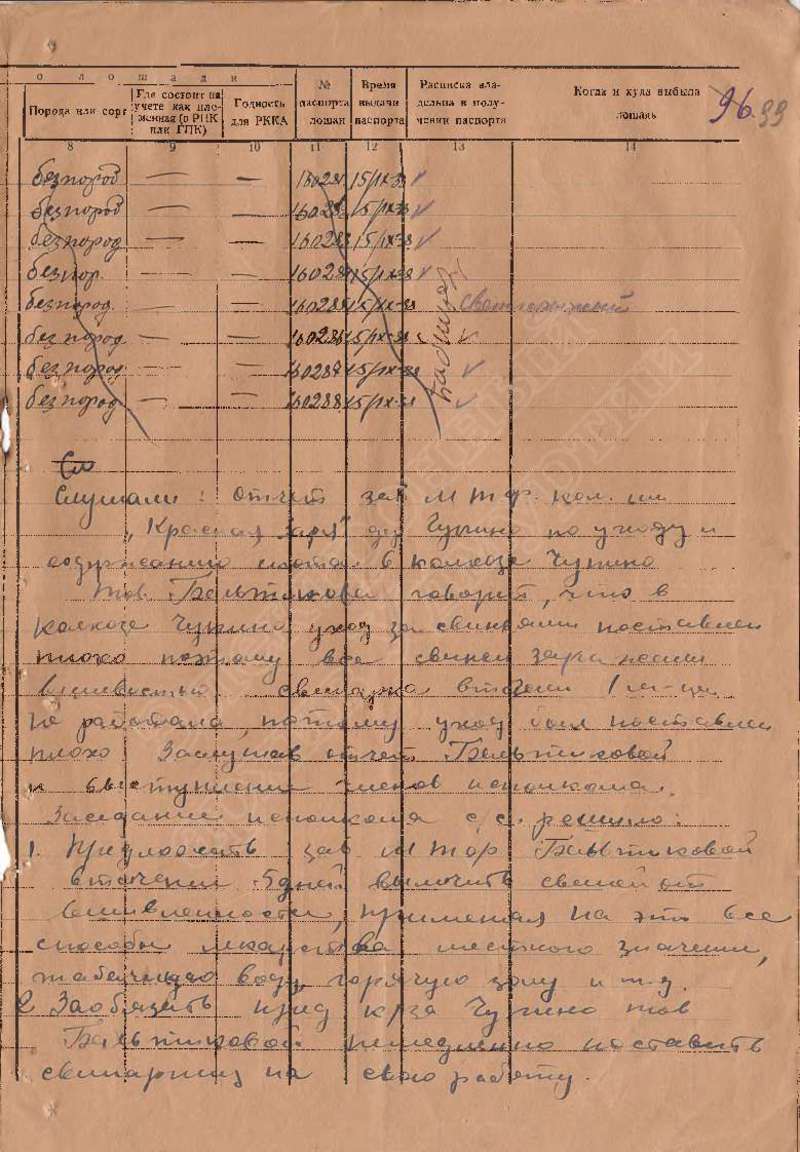 о лошади
Порода или сорт
Где состоит на учете как племенная (о РПК или ГПК)
Годность для РККА
№ паспорта лошади
Время выдачи паспорта
Расписка владельца в получении паспорта
Когда и куда выбыла лошадь
96. 99
8 9 10 11 12 13 14
безпород — — 15/IX-38 ✓
безпород — — 15/IX-38 ✓
безпород — — 15/IX-38 ✓
безпор. — — 15/IX-38 ✓
безпород. — — 160285 15/IX-38
без пород — — 160286 15/IX-38 ✓
безпород — — 160287 15/IX-38 ✓
безпород — — 160288 15/IX-38 ✓
Слушали: Отчет зав МТФ. кол.
„Красная заря" дер Чупино по уходу и
содержанию скота в колхозе Чупино
тов Бельтикова говорит, что в
колхозе Чупино уход за свиньями поставлен
плохо поэтому все свиньи заражены
вшивостью свинарка втечени 1 м-ца
не работала, потому уход был поставлен
плохо. Заслушав отчет Бельтиковой
и выступления членов исполкома.
Заседание исполкома с/с. решило:
1. Предложить зав МТФ Бельтиковой
втечении 5 дней вылечить свиней от
вшивленности, применяя на это все
способы лекарства местного значения,
воду, горячую золу и т.д.
2. Заобязать пред к/за Чупино тов
Бельтиковой немедленно поставить
свинарниц на свою работу.